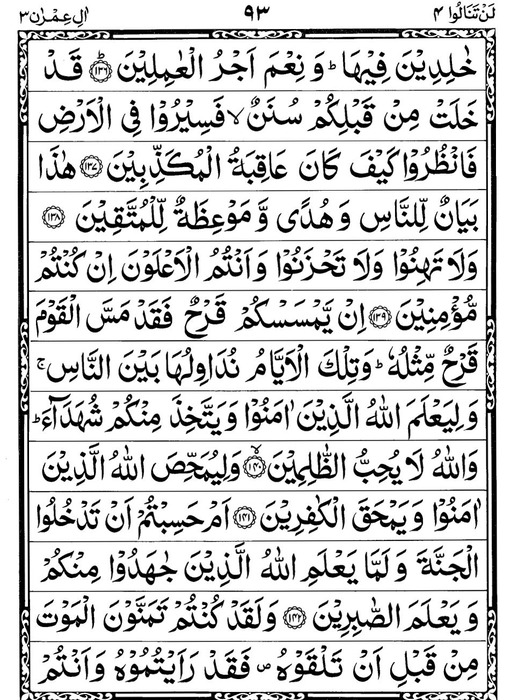 لَنْ تَنَالُوا ٤ ٩٣ اٰلِ عِمْرٰن ٣
خٰلِدِیْنَ فِیْهَا ؕ وَ نِعْمَ اَجْرُ الْعٰمِلِیْنَ ؕ﴿۱۳۶﴾ قَدْ
خَلَتْ مِنْ قَبْلِكُمْ سُنَنٌ ۙ فَسِیْرُوْا فِی الْاَرْضِ
فَانْظُرُوْا كَیْفَ كَانَ عَاقِبَةُ الْمُكَذِّبِیْنَ ﴿۱۳۷﴾ هٰذَا
بَیَانٌ لِّلنَّاسِ وَ هُدًی وَّ مَوْعِظَةٌ لِّلْمُتَّقِیْنَ ﴿۱۳۸﴾
وَلَا تَهِنُوْا وَلَا تَحْزَنُوْا وَاَنْتُمُ الْاَعْلَوْنَ اِنْ كُنْتُمْ
مُّؤْمِنِیْنَ ﴿۱۳۹﴾ اِنْ یَّمْسَسْكُمْ قَرْحٌ فَقَدْ مَسَّ الْقَوْمَ
قَرْحٌ مِّثْلُهٗ ؕ وَتِلْكَ الْاَیَّامُ نُدَاوِلُهَا بَیْنَ النَّاسِ ۚ
وَلِیَعْلَمَ اللهُ الَّذِیْنَ اٰمَنُوْا وَیَتَّخِذَ مِنْكُمْ شُهَدَآءَ ؕ
وَاللهُ لَا یُحِبُّ الظّٰلِمِیْنَ ۙ﴿۱۴۰﴾ وَلِیُمَحِّصَ اللهُ الَّذِیْنَ
اٰمَنُوْا وَیَمْحَقَ الْكٰفِرِیْنَ ﴿۱۴۱﴾ اَمْ حَسِبْتُمْ اَنْ تَدْخُلُوا
الْجَنَّةَ وَلَمَّا یَعْلَمِ اللهُ الَّذِیْنَ جٰهَدُوْا مِنْكُمْ
وَ یَعْلَمَ الصّٰبِرِیْنَ ﴿۱۴۲﴾ وَلَقَدْ كُنْتُمْ تَمَنَّوْنَ الْمَوْتَ
مِنْ قَبْلِ اَنْ تَلْقَوْهُ ۪ فَقَدْ رَاَیْتُمُوْهُ وَاَنْتُمْ